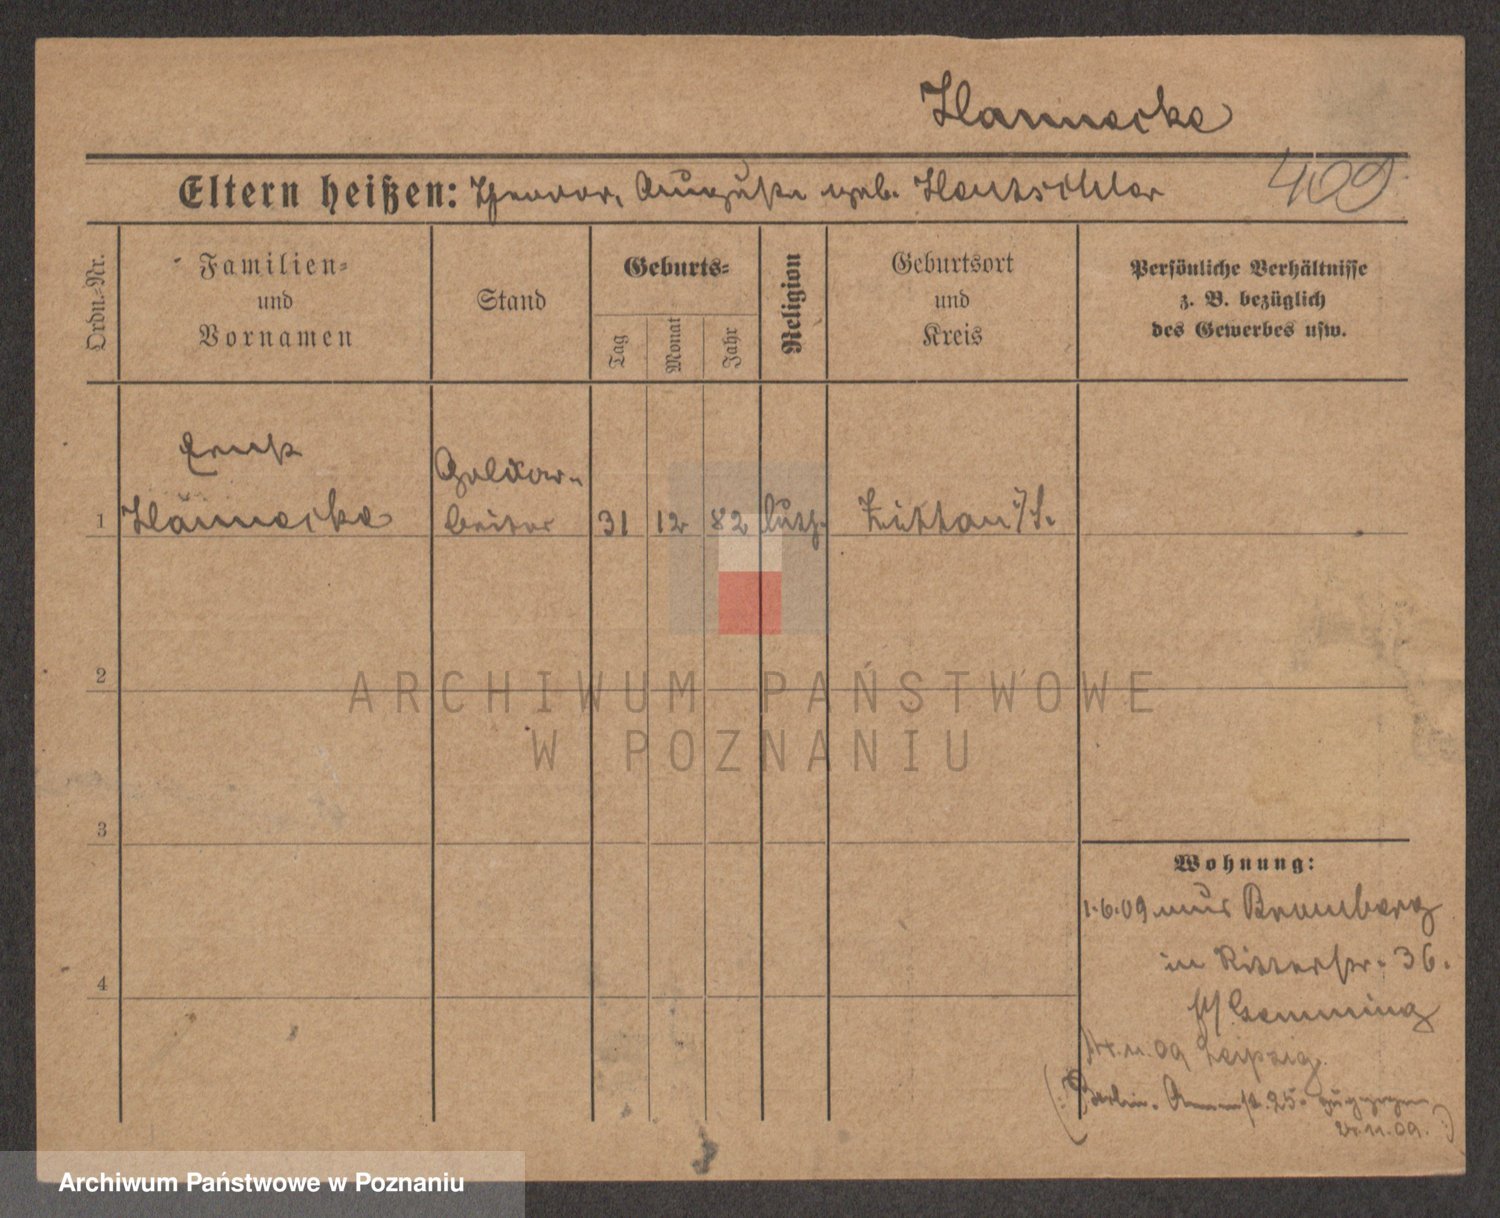 Hannecke
Eltern heißen: Theodor, Auguste geb. Hentschler
409
Ordn.-Nr.
Familien- und Vornamen
Stand
Geburts-
Tag
Monat
Jahr
Religion
Geburtsort und Kreis
Persönliche Verhältnisse z. B. bezüglich des Gewerbes usw.
Ernst
Goldar-
1 Hannecke beiter 31 12 82 luth. Zittau i/S.
2
3
4
Wohnung:
1.6.09 aus Bromberg
in Ritterstr. 36.
b/ Gemming
11.09 Leipzig
(: Berlin. 25. zugezogen
11.09. :)
ARCHIWUM PAŃSTWOWE
W POZNANIU
Archiwum Państwowe w Poznaniu